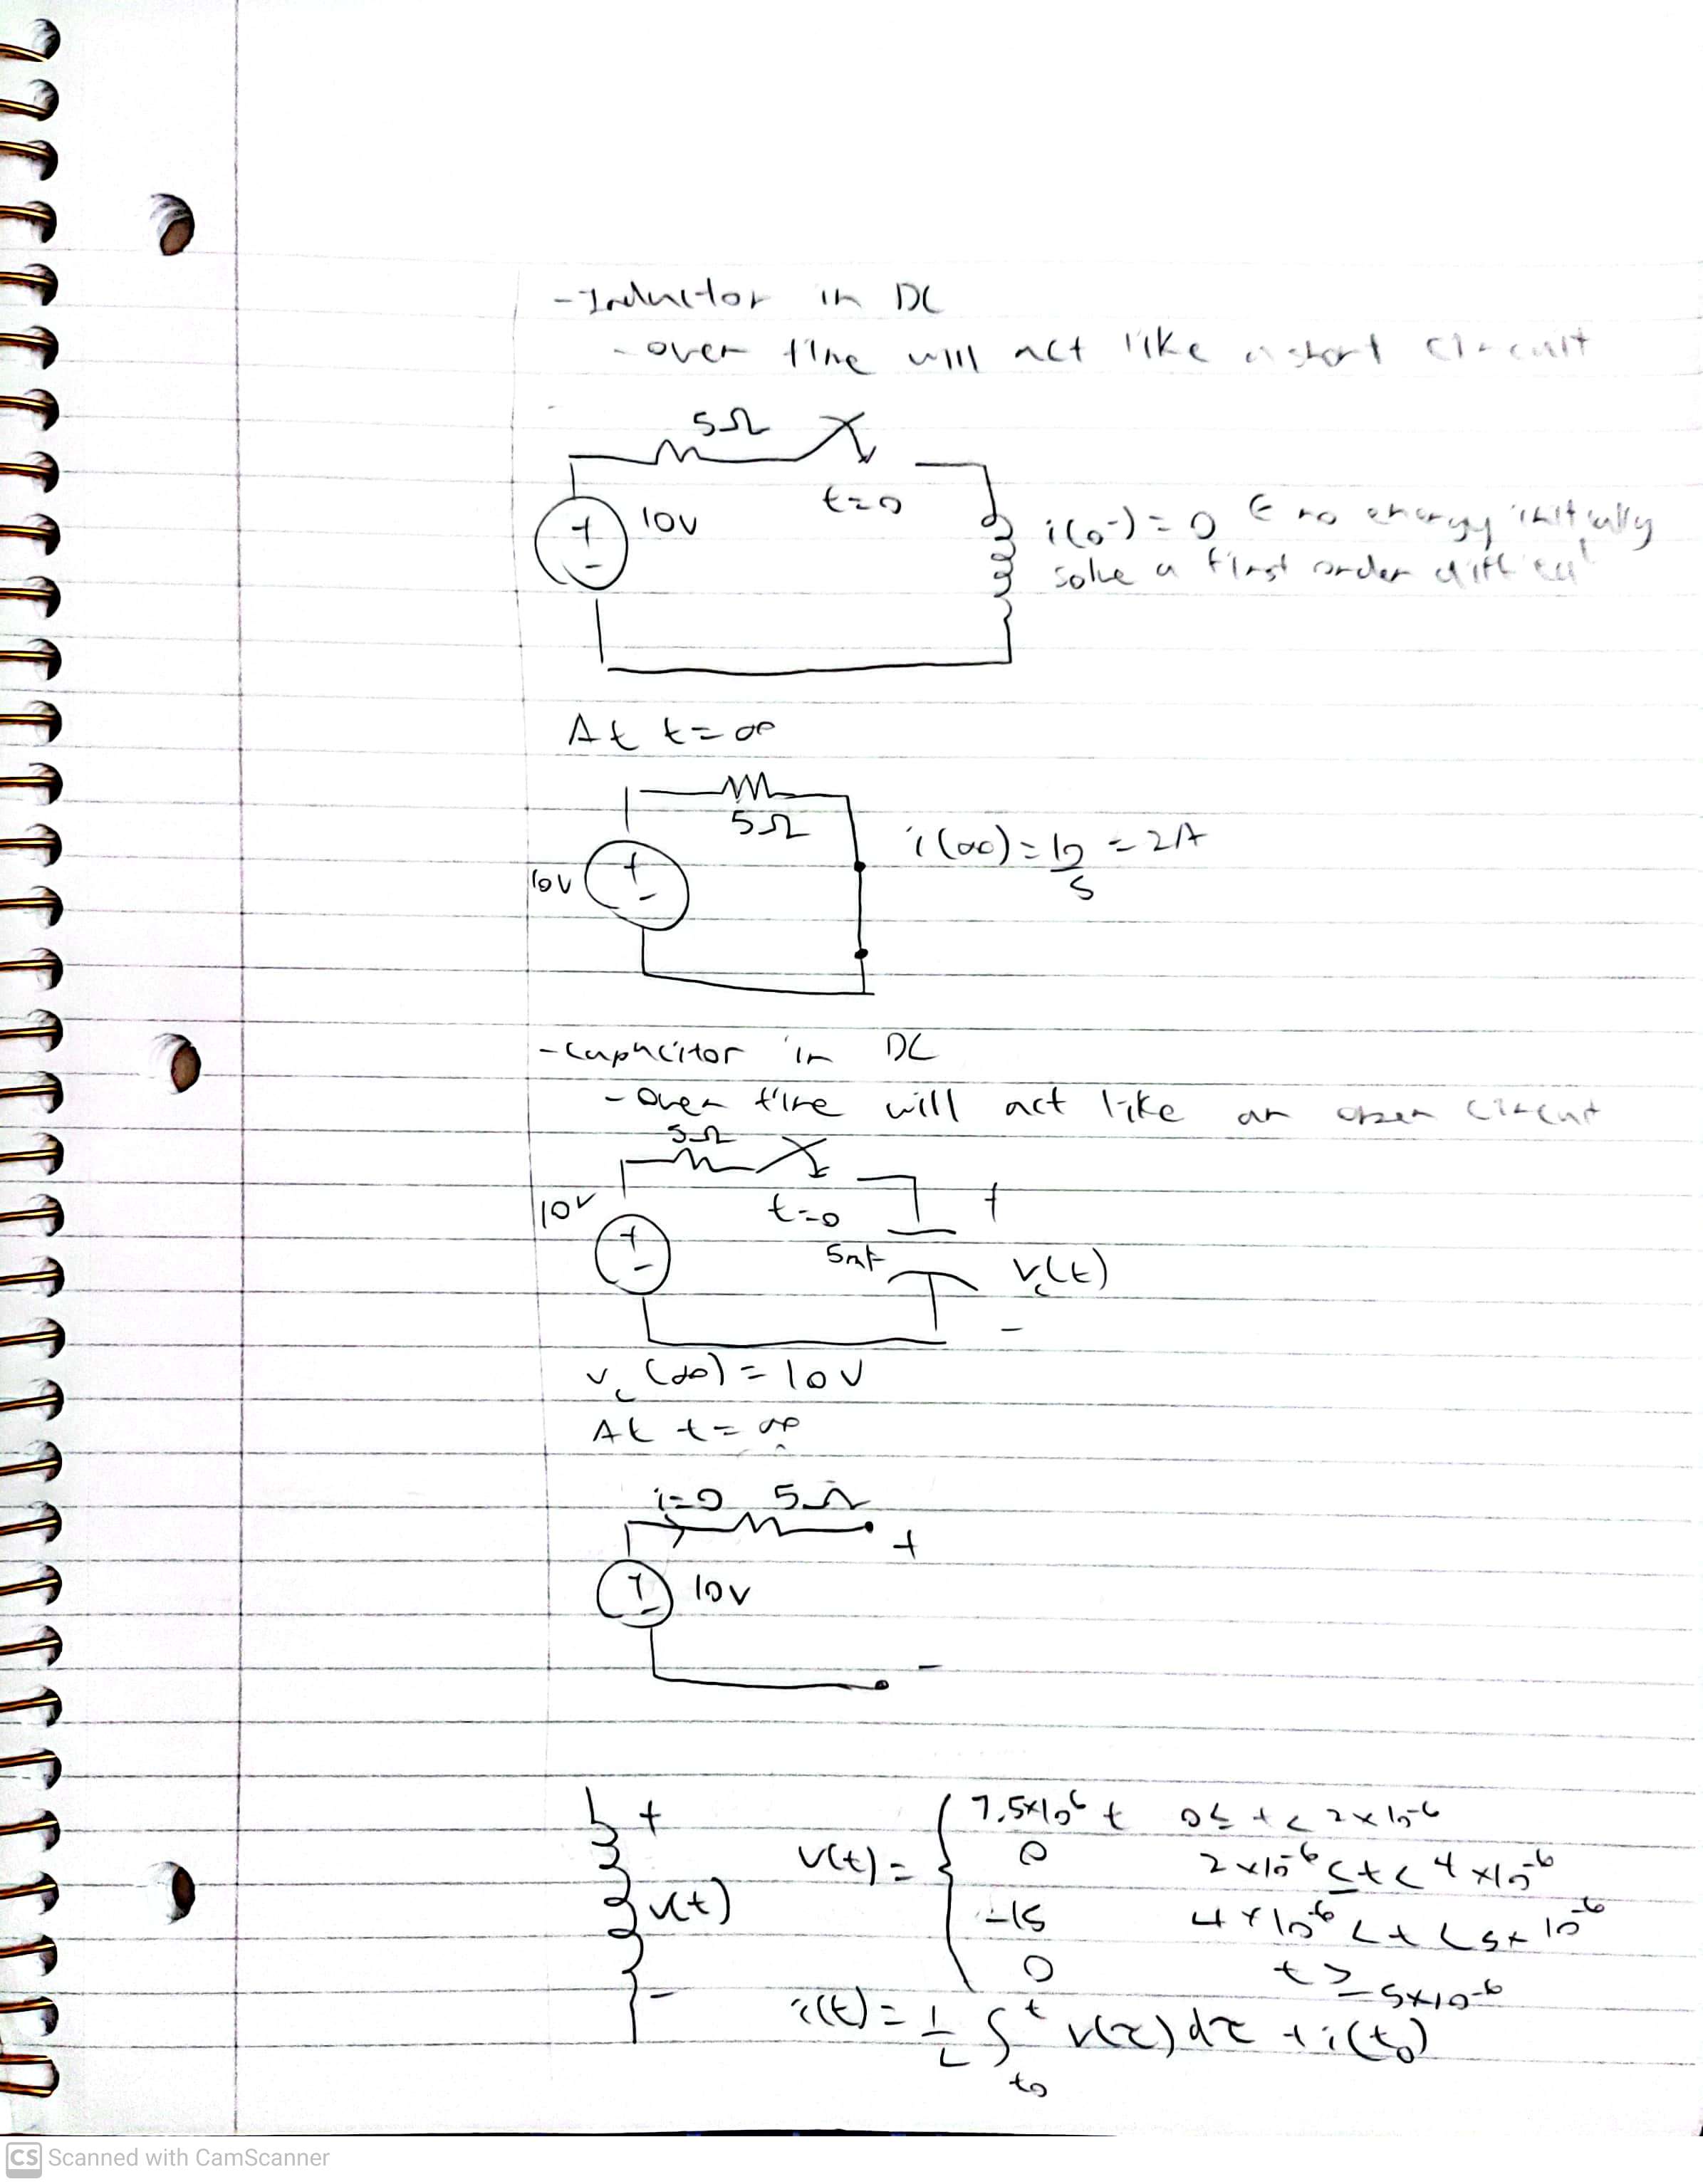 - Inductor in DC
- over time will act like a short circuit
5Ω
t=0
10V
i(0⁻) = 0 ← no energy initially
solve a first order diff eq
At t=∞
5Ω
10V
i(∞) = 10/5 = 2A
- Capacitor in DC
- Over time will act like an open circuit
5Ω
10V
t=0
+
5mF
v_c(t)
-
v_c(∞) = 10V
At t=∞
i=0 5Ω
+
10V
-
+
v(t)
-
v(t) = { 7.5×10⁶ t 0 ≤ t < 2×10⁻⁶
0 2×10⁻⁶ ≤ t < 4×10⁻⁶
-15 4×10⁻⁶ < t < 5×10⁻⁶
0 t ≥ 5×10⁻⁶
i(t) = 1/L ∫_{t₀}^{t} v(τ) dτ + i(t₀)
CS Scanned with CamScanner